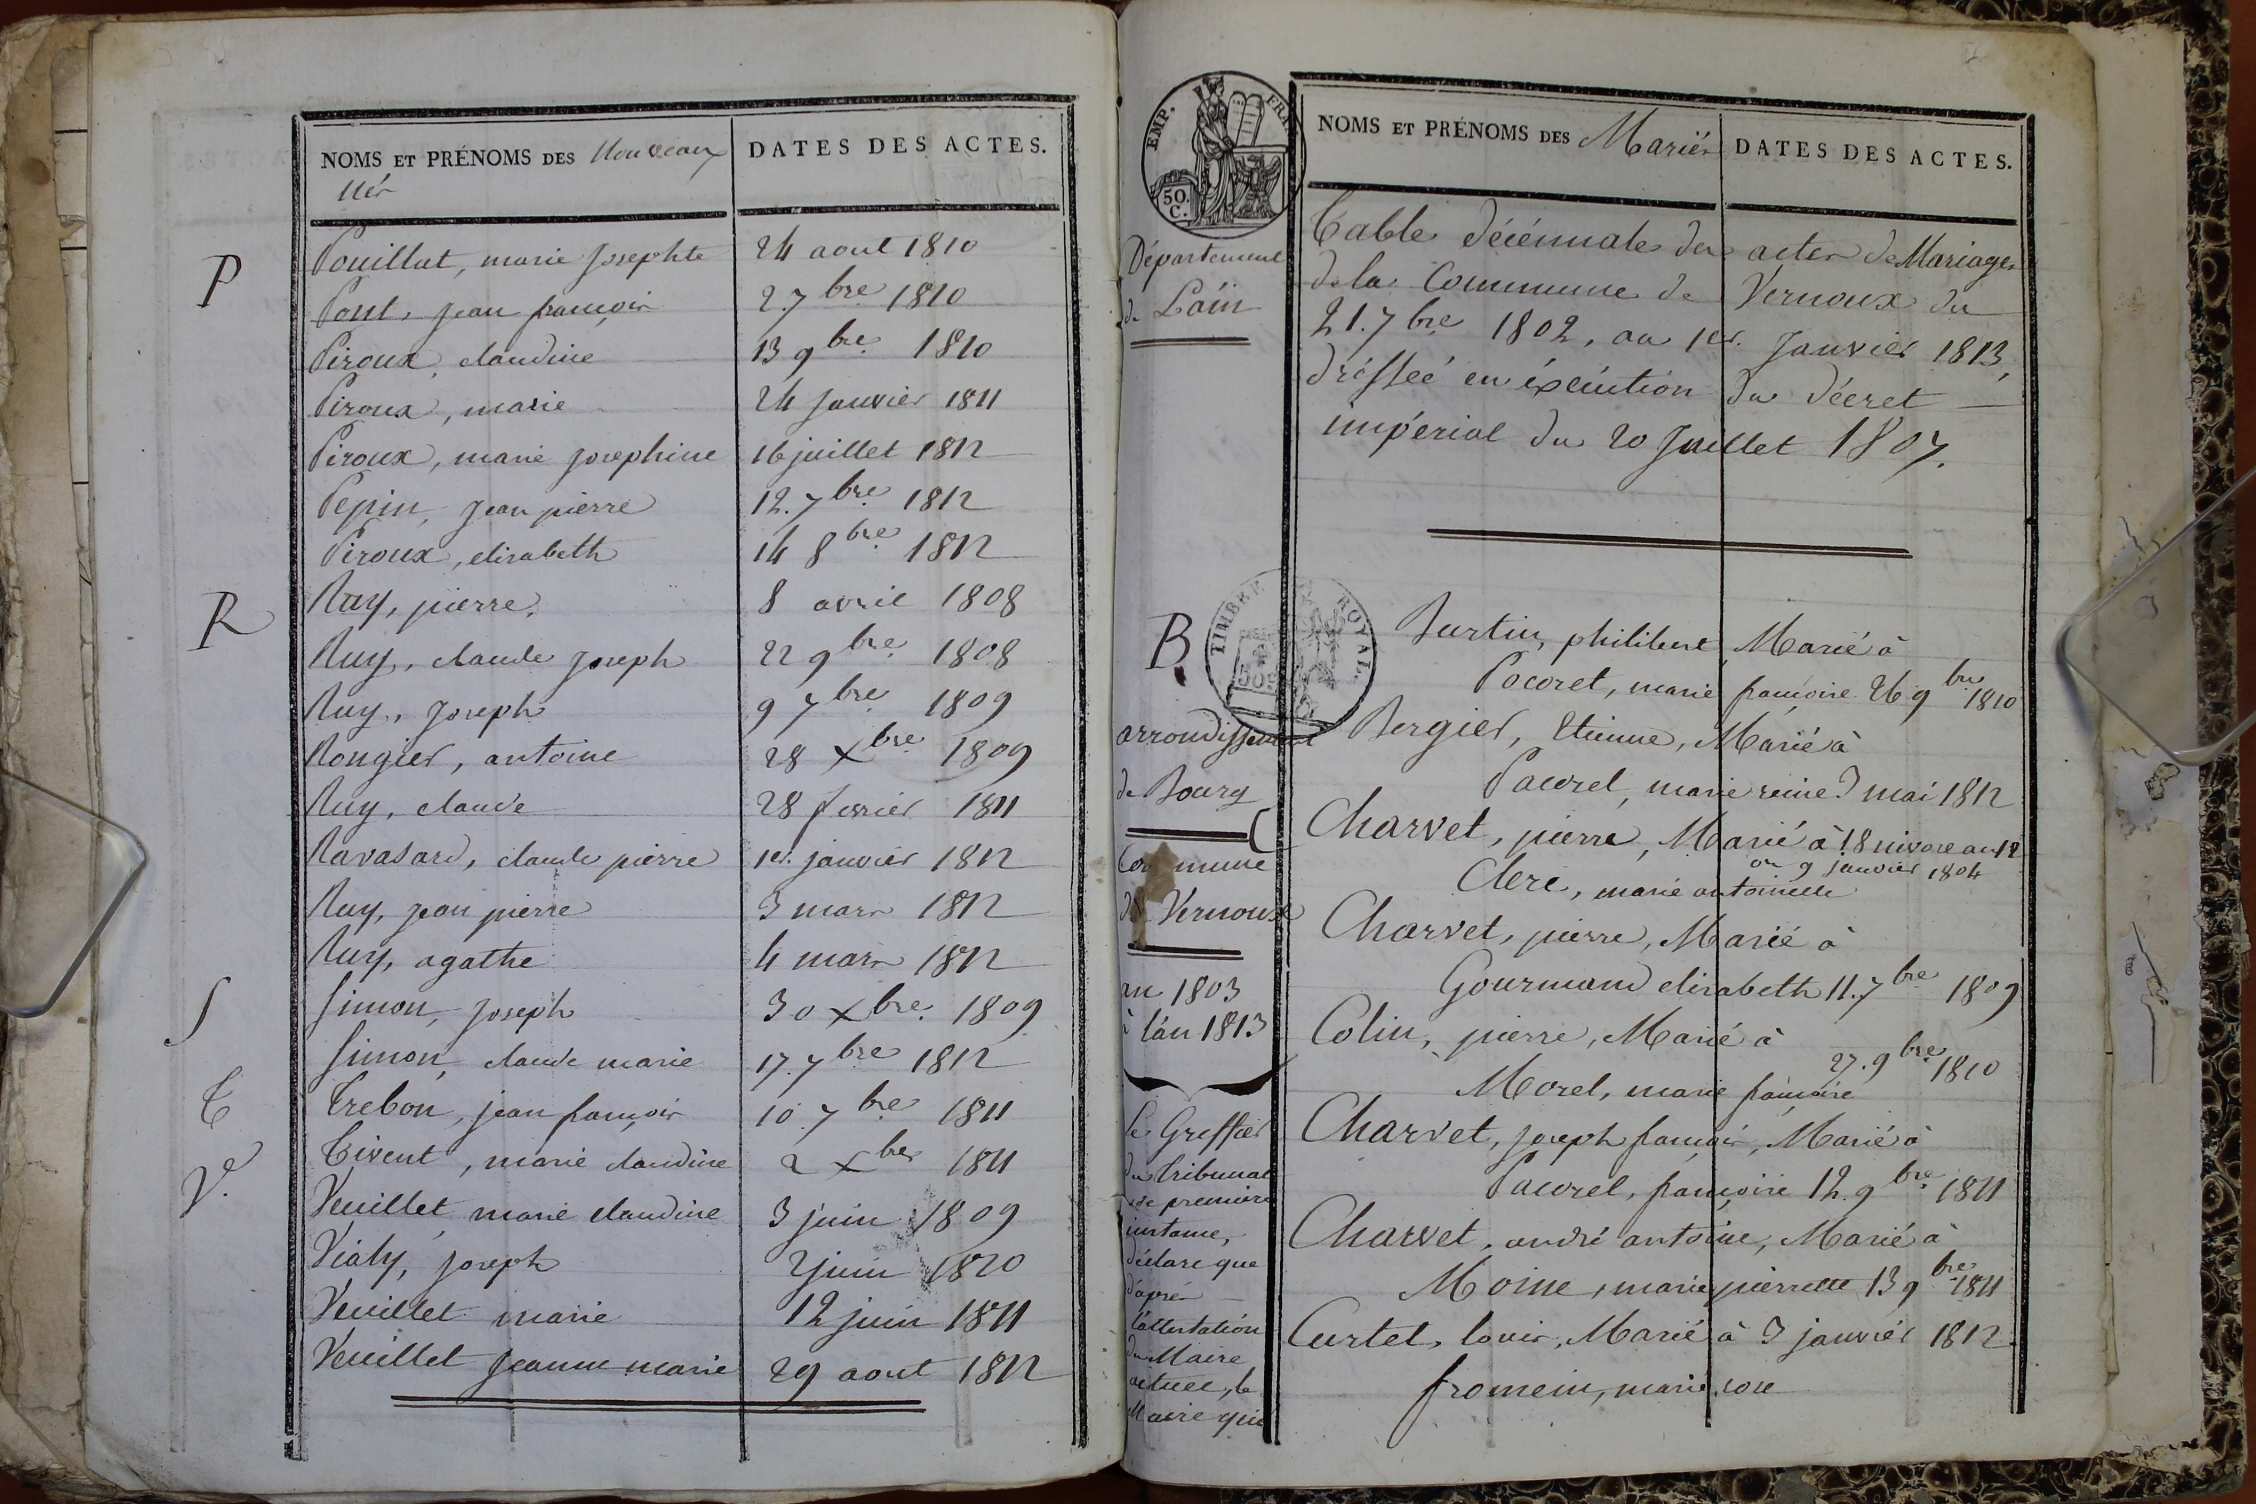 NOMS ET PRÉNOMS DES Nouveaux DATES DES ACTES.
nés
P
Pouillat, marie Josephte 24 aout 1810
Pont, Jean françois 2.7bre 1810
Piroux, claudine 13 9bre 1810
Piroux, marie 24 Janvier 1811
Piroux, marie Josephine 16 juillet 1812
Pepin, Jean pierre 12.7bre 1812
Piroux, elisabeth 14 8bre 1812
R
Ruy, pierre. 8 avril 1808
Ruy, claude Joseph 22 9bre 1808
Ruy, Joseph 9 7bre 1809
Rongier, antoine 28 Xbre 1809
Ruy, claude 28 fevrier 1811
Ravasard, claude pierre 1er. janvier 1812
Ruy, Jean pierre 3 mars 1812
Ruy, agathe 4 mars 1812
S
Simon, Joseph 30 Xbre. 1809
Simon, claude marie 17.7bre 1812
T
Trebon, jean françois 10.7bre 1811
Tivent, marie claudine 2 Xbre 1811
V.
Veuillet marie claudine 3 juin 1809
Vialy, Joseph 2 juin 1810
Veuillet marie 12 juin 1811
Veuillet Jeanne marie 29 aout 1812
EMP. FRAN.
50.
C.
NOMS ET PRÉNOMS DES Mariés DATES DES ACTES.
Département
de L'ain
Table décénnale des actes de Mariages
de la Commune de Vernoux du
21.7bre 1802, au 1er. Janvier 1813,
dréssée en éxécution du décret
impérial du 20 Juillet 1807.
TIMBRE ROYAL.
B
arrondissement
de Bourg
Commune
de Vernoux
an 1803
à l'an 1813
Le Greffier
du tribunal
de premiere
instance,
déclare que
d'après
l'attestation
du Maire
actuel, le
Maire qui
Burtin, philibert Marié à
Pocoret, marie françoise 26 9bre 1810
Bergier, Etienne, Marié à
Pacorel, marie reine 3 mai 1812
C
Charvet, pierre, Marié à 18 nivose an 12
ou 9 janvier 1804
Clerc, marie antoinette
Charvet, pierre, Marié à
Gourmand elisabeth 11.7bre 1809
Colin, pierre, Marié à
27.9bre 1810
Morel, marie françoise
Charvet, Joseph françois, Marié à
Pacorel, françoise 12.9bre 1811
Charvet, andré antoine, Marié à
Moine, marie pierrette 13 9bre 1811
Curtet, louis, Marié à 3 janvier 1812
fromein, marie rose